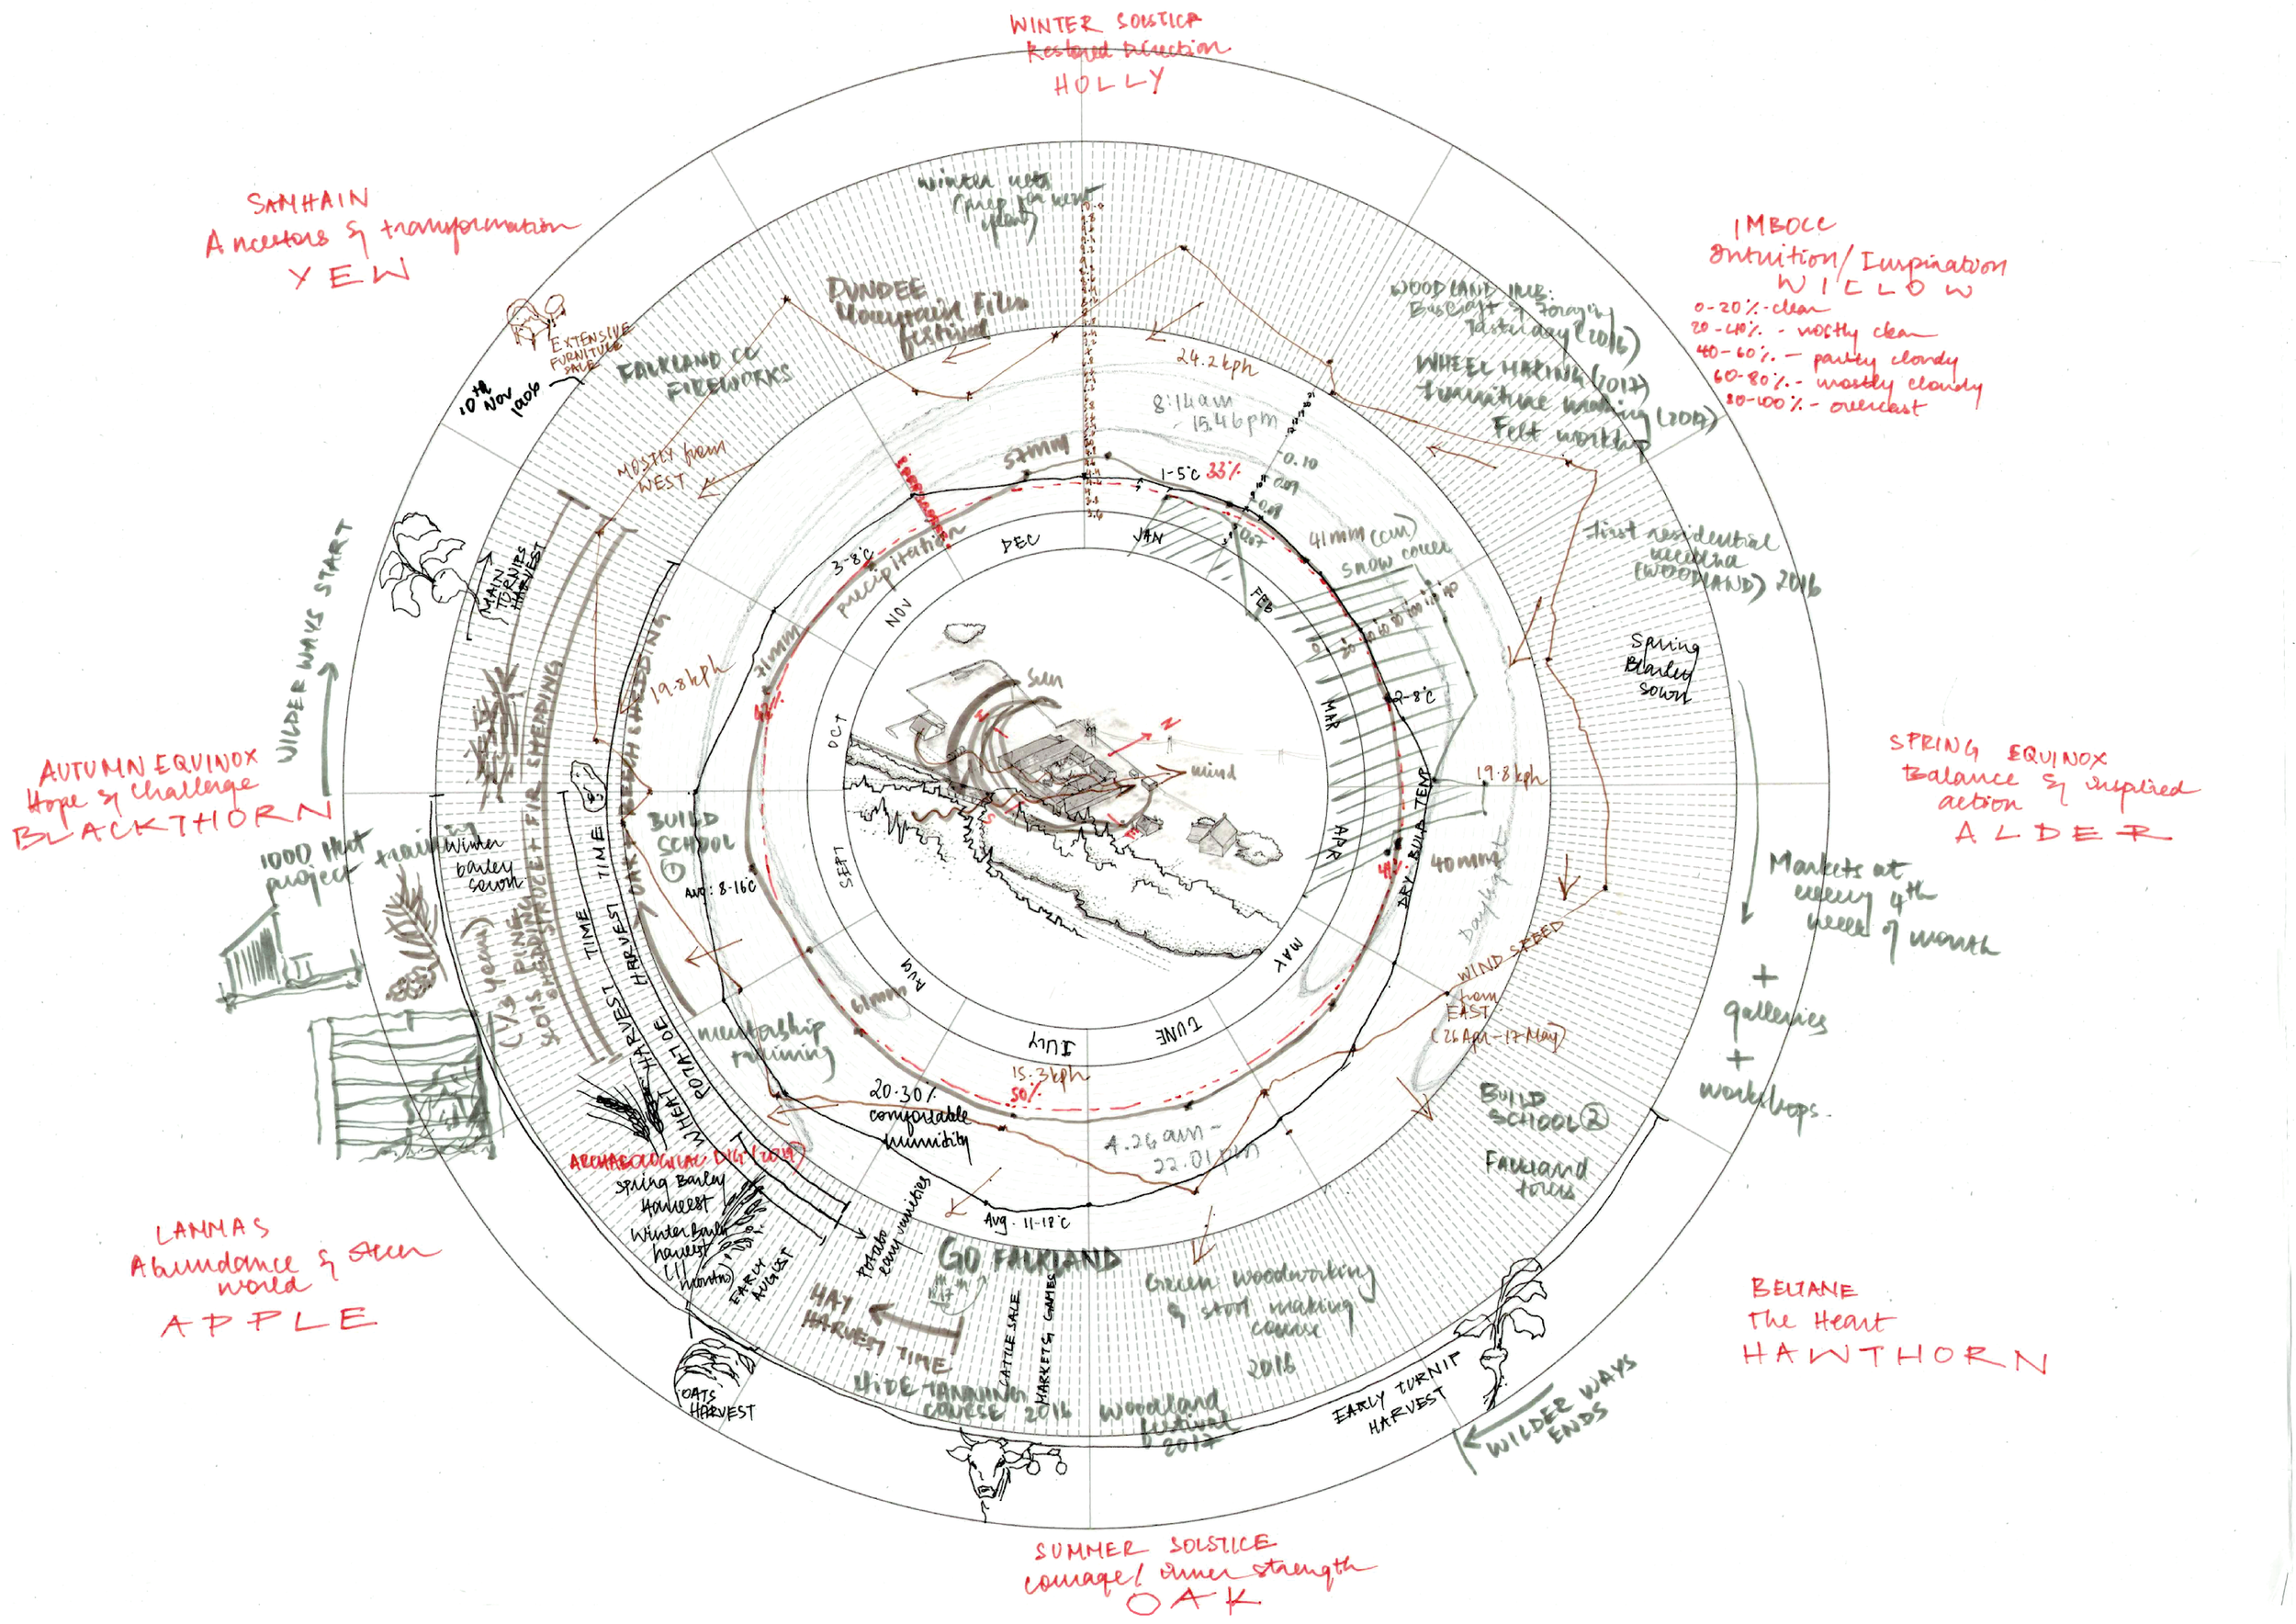 WINTER SOLSTICE
Restored Direction
HOLLY
SAMHAIN
Ancestors & transformation
YEW
IMBOLC
Intuition/Inspiration
WILLOW
0-20%-clear
20-40% - mostly clear
40-60% - partly cloudy
60-80% - mostly cloudy
80-100% - overcast
EXTENSIVE
FURNITURE
SALE
10th
Nov
1906
FALKLAND CC
FIREWORKS
DUNDEE
Mountain Film
festival
winter
(prep for next
year)
WOODLAND
Bushcraft & Foraging
(2016)
WHEEL MAKING (2017)
furniture making (2017)
Felt workshop
first residential
(WOODLAND) 2016
Spring
Barley
sown
24.2kph
8:14am
-15.46pm
57mm
1-5°C 33%
-0.10
MOSTLY from
WEST
3-8°C
precipitation
41mm
snow cover
DEC
JAN
FEB
MAR
APR
MAY
JUNE
JULY
AUG
SEPT
OCT
NOV
Sun
wind
N
S
E
71mm
19.8kph
2-8°C
19.8kph
DRY-BULB TEMP
40mm
Daylight
WIND SPEED
from
EAST
(26 Apr-17 May)
MAIN
TURNIPS
HARVEST
WILDER WAYS START
AUTUMN EQUINOX
Hope & challenge
BLACKTHORN
1000 Hut
project training
winter
barley
sown
BUILD
SCHOOL
①
Avg: 8-16°C
mentorship
training
61mm
15.3kph
50%
20-30%
comfortable
humidity
4.26am-
22.01pm
Avg. 11-18°C
SPRING EQUINOX
Balance & inspired
action
ALDER
Markets at
every 4th
week of month
+
galleries
+
workshops
BUILD
SCHOOL ②
Falkland
HARVEST TIME
WHEAT HARVEST TIME
POTATOE HARVEST TIME
ARCHAEOLOGICAL DIG (2019)
Spring Barley
Harvest
Winter Barley
harvest
(11
months)
EARLY
AUGUST
Potato
early varieties
HAY
HARVEST TIME
GO FALKLAND
CATTLE SALE
MARKET & GAMES
HIDE TANNING
COURSE 2016
Green woodworking
& stool making
course
2016
Woodland
festival
2017
EARLY TURNIP
HARVEST
WILDER WAYS
ENDS
OATS
HARVEST
LAMMAS
Abundance &
world
APPLE
BELTANE
The Heart
HAWTHORN
SUMMER SOLSTICE
courage/ inner strength
OAK